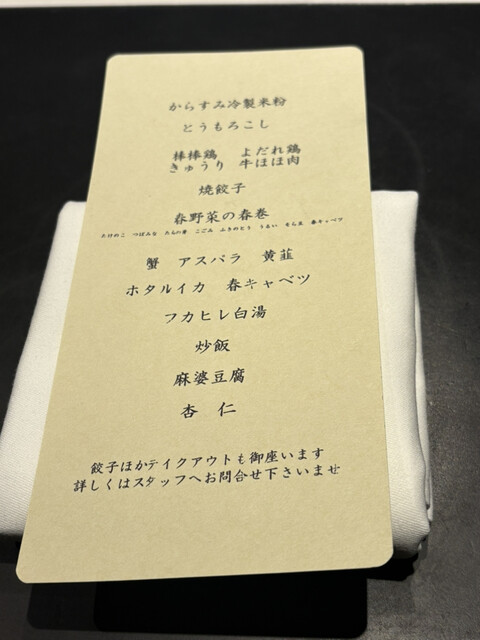 からすみ冷製米粉
とうもろこし
棒棒鶏　よだれ鶏
きゅうり　牛ほほ肉
焼餃子
春野菜の春巻
たけのこ　つぼみな　たらの芽　こごみ　ふきのとう　うるい　そら豆　春キャベツ
蟹　アスパラ　黄韮
ホタルイカ　春キャベツ
フカヒレ白湯
炒飯
麻婆豆腐
杏　仁
餃子ほかテイクアウトも御座います
詳しくはスタッフへお問合せ下さいませ